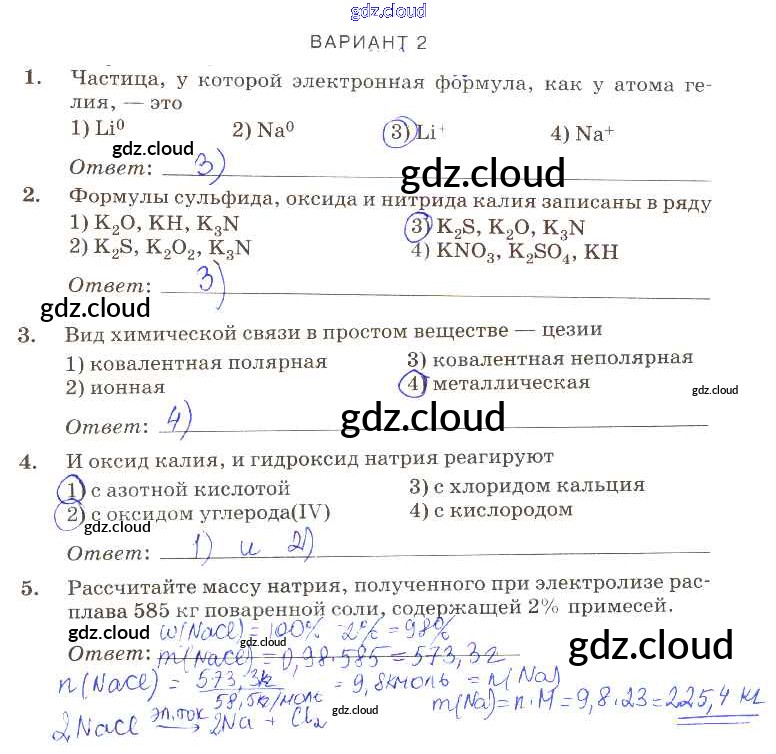 gdz.cloud
ВАРИАНТ 2
1. Частица, у которой электронная формула, как у атома ге-
лия, — это
1) Li⁰ 2) Na⁰ 3) Li⁺ 4) Na⁺
gdz.cloud
Ответ: 3)
gdz.cloud
2. Формулы сульфида, оксида и нитрида калия записаны в ряду
1) K₂O, KH, K₃N 3) K₂S, K₂O, K₃N
2) K₂S, K₂O₂, K₃N 4) KNO₃, K₂SO₄, KH
Ответ: 3)
gdz.cloud
3. Вид химической связи в простом веществе — цезии
1) ковалентная полярная 3) ковалентная неполярная
2) ионная 4) металлическая
gdz.cloud
Ответ: 4)
gdz.cloud
4. И оксид калия, и гидроксид натрия реагируют
1) с азотной кислотой 3) с хлоридом кальция
2) с оксидом углерода(IV) 4) с кислородом
gdz.cloud
Ответ: 1) и 2)
5. Рассчитайте массу натрия, полученного при электролизе рас-
плава 585 кг поваренной соли, содержащей 2% примесей.
gdz.cloud
w(NaCl) = 100% - 2% = 98%
gdz.cloud
Ответ: m(NaCl) = 0,98·585 = 573,3г
gdz.cloud
n(NaCl) = 573,3кг / 58,5кг/моль = 9,8кмоль = n(Na)
m(Na) = n·M = 9,8·23 = 225,4 кг
2NaCl эл.ток → 2Na + Cl₂
gdz.cloud